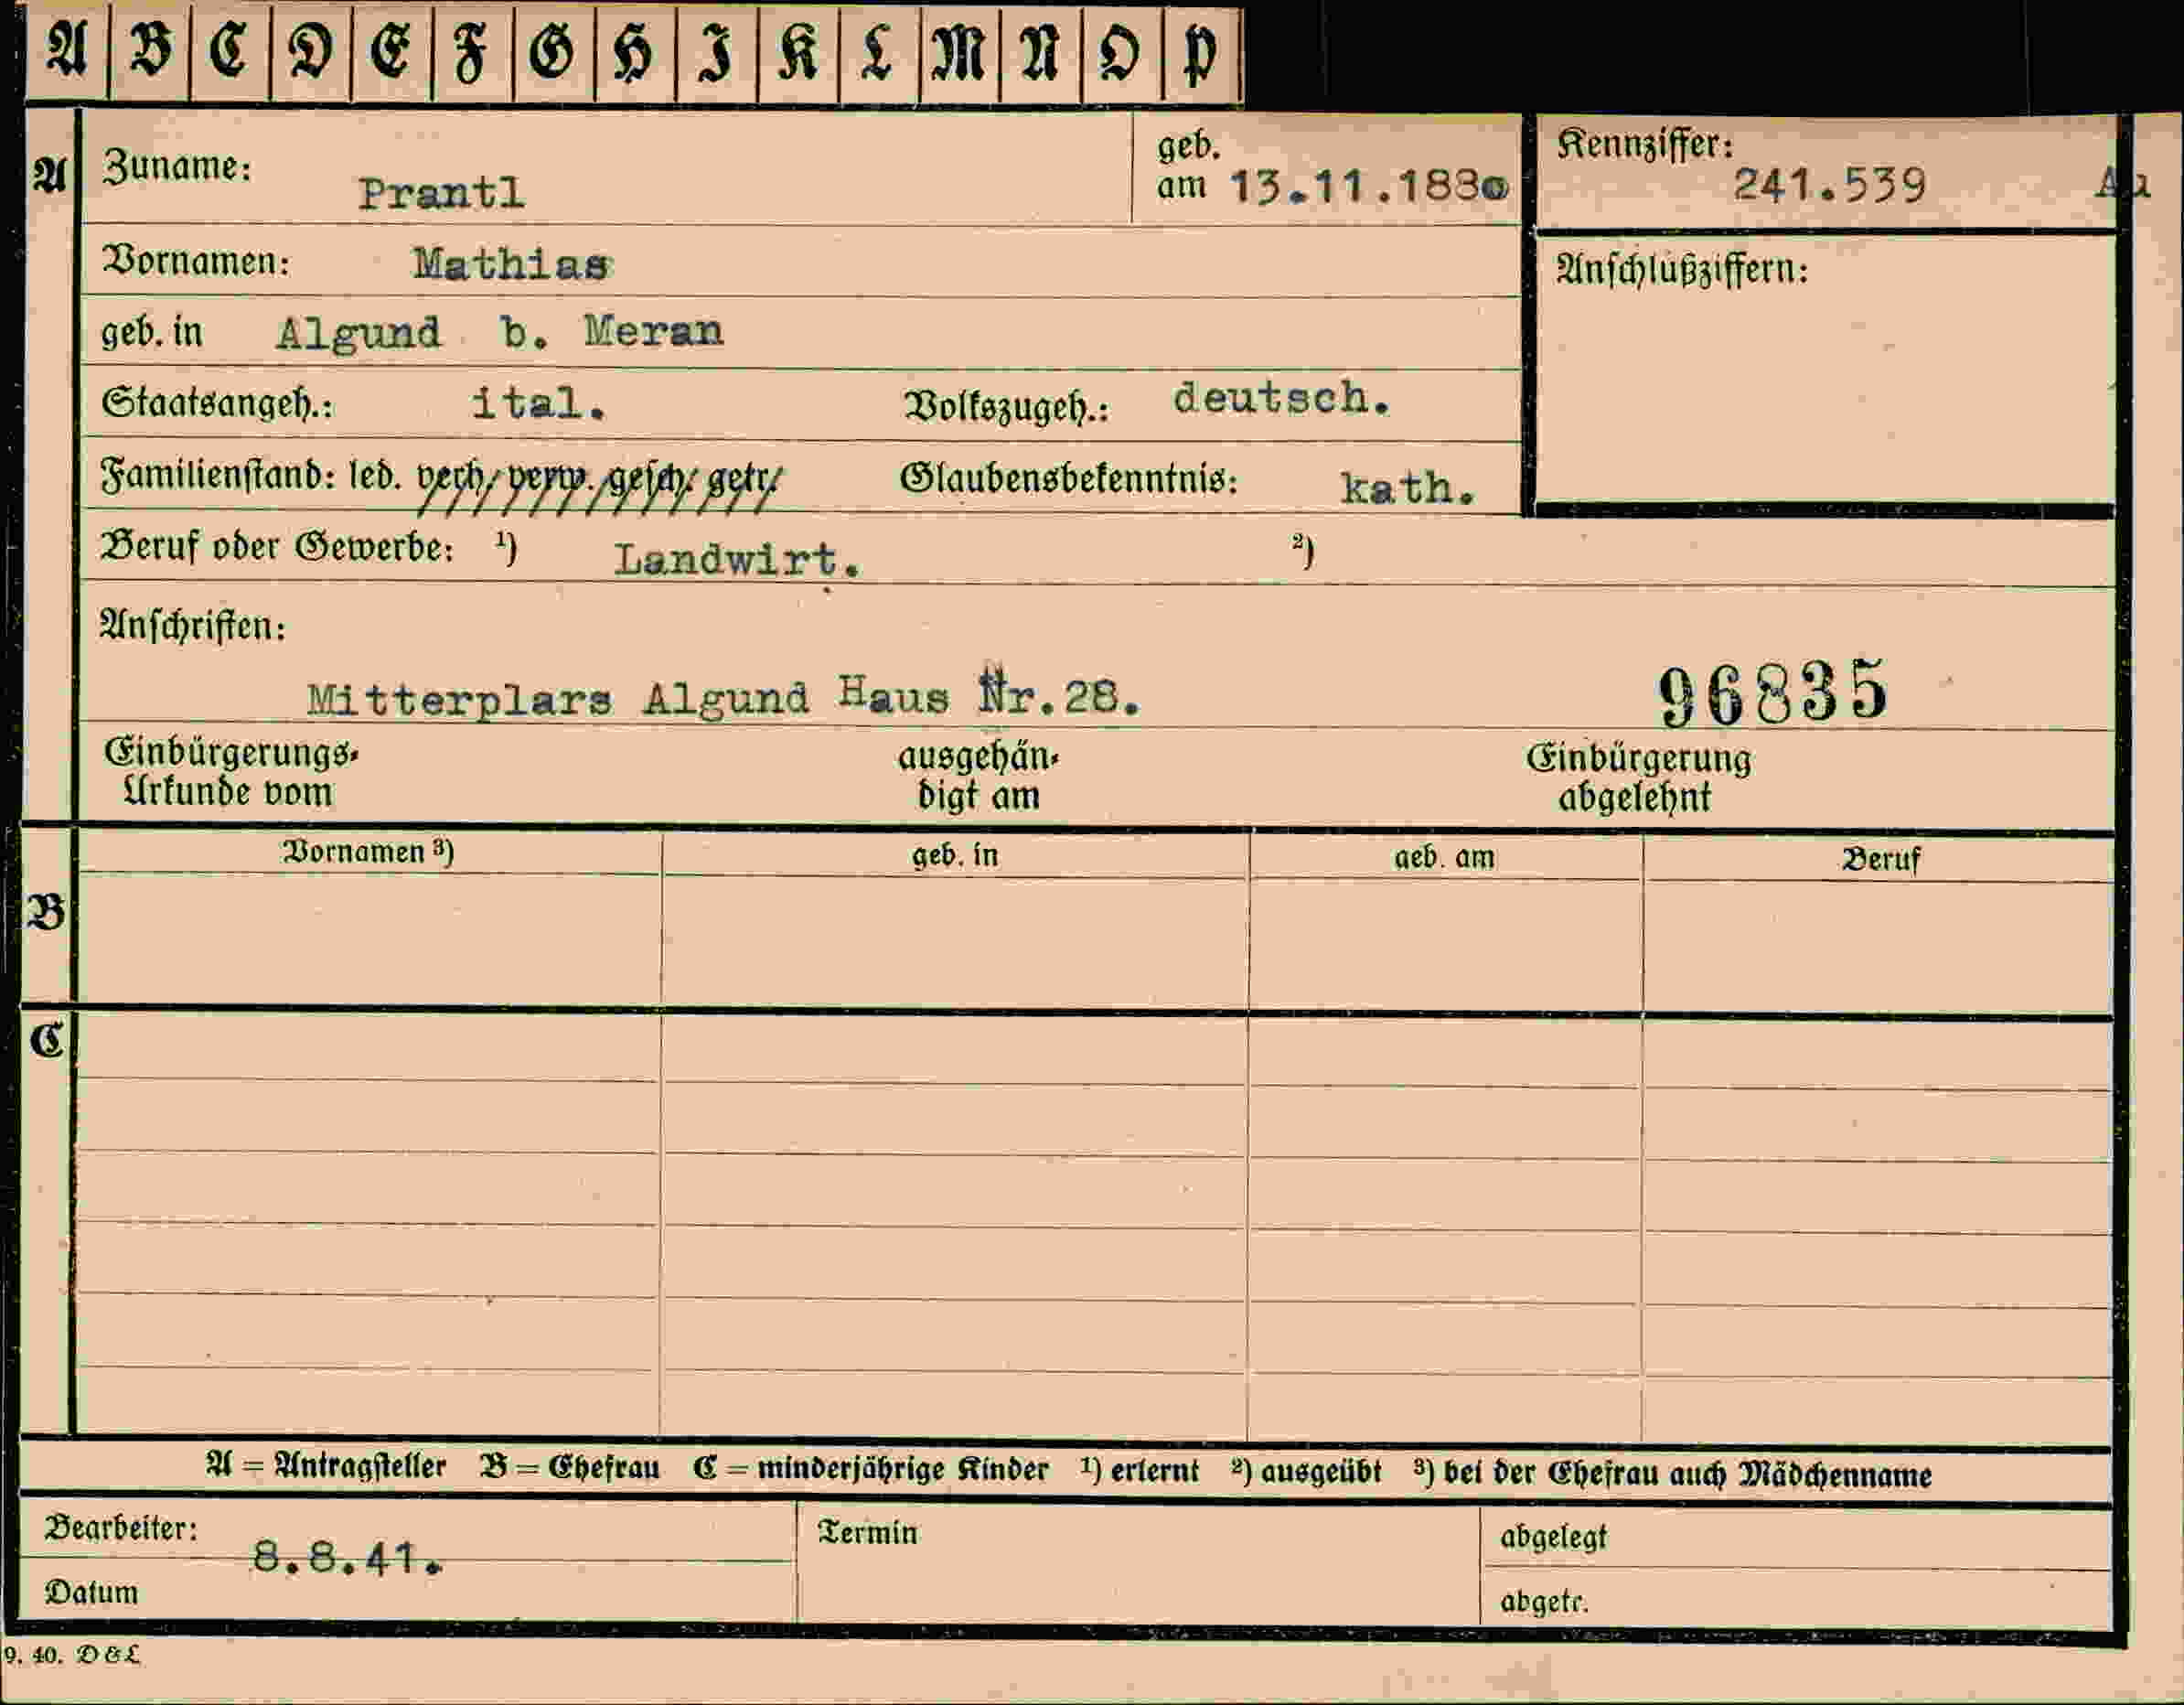 A B C D E F G H I K L M N O P
A Zuname: Prantl geb. am 13.11.1880 Kennziffer: 241.539 Au
Vornamen: Mathias Anschlußziffern:
geb. in Algund b. Meran
Staatsangeh.: ital. Volkszugeh.: deutsch.
Familienstand: led. verh/ verw. gesch. getr. Glaubensbekenntnis: kath.
Beruf oder Gewerbe: ¹) Landwirt. ²)
Anschriften:
Mitterplars Algund Haus Nr.28. 96835
Einbürgerungs-Urkunde vom ausgehän-digt am Einbürgerung abgelehnt
Vornamen ³) geb. in geb. am Beruf
B
C
A = Antragsteller B = Ehefrau C = minderjährige Kinder ¹) erlernt ²) ausgeübt ³) bei der Ehefrau auch Mädchenname
Bearbeiter: 8.8.41. Termin abgelegt
Datum abgetr.
9. 40. D & L